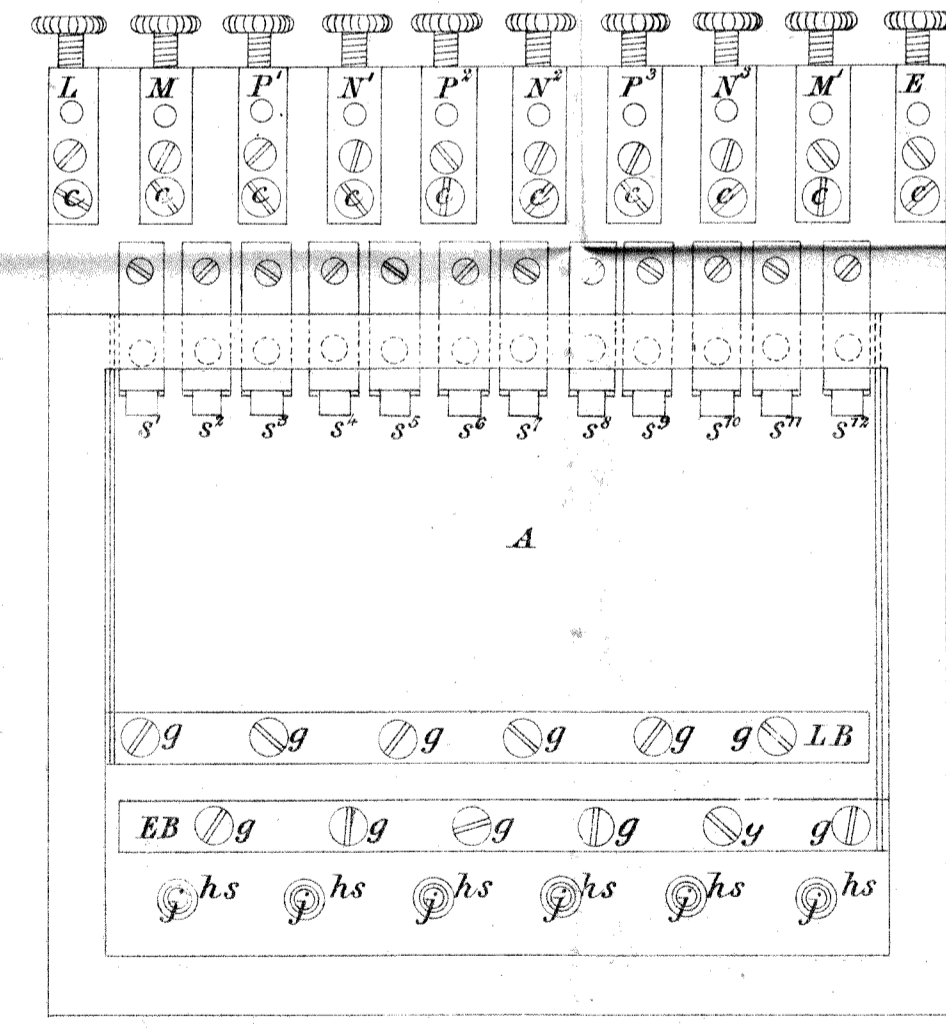 L M P¹ N¹ P² N² P³ N³ M' E
c c c c c c c c c c
s¹ s² s³ s⁴ s⁵ s⁶ s⁷ s⁸ s⁹ s¹⁰ s¹¹ s¹²
A
g g g g g g LB
EB g g g g y g
j hs j hs j hs j hs j hs j hs